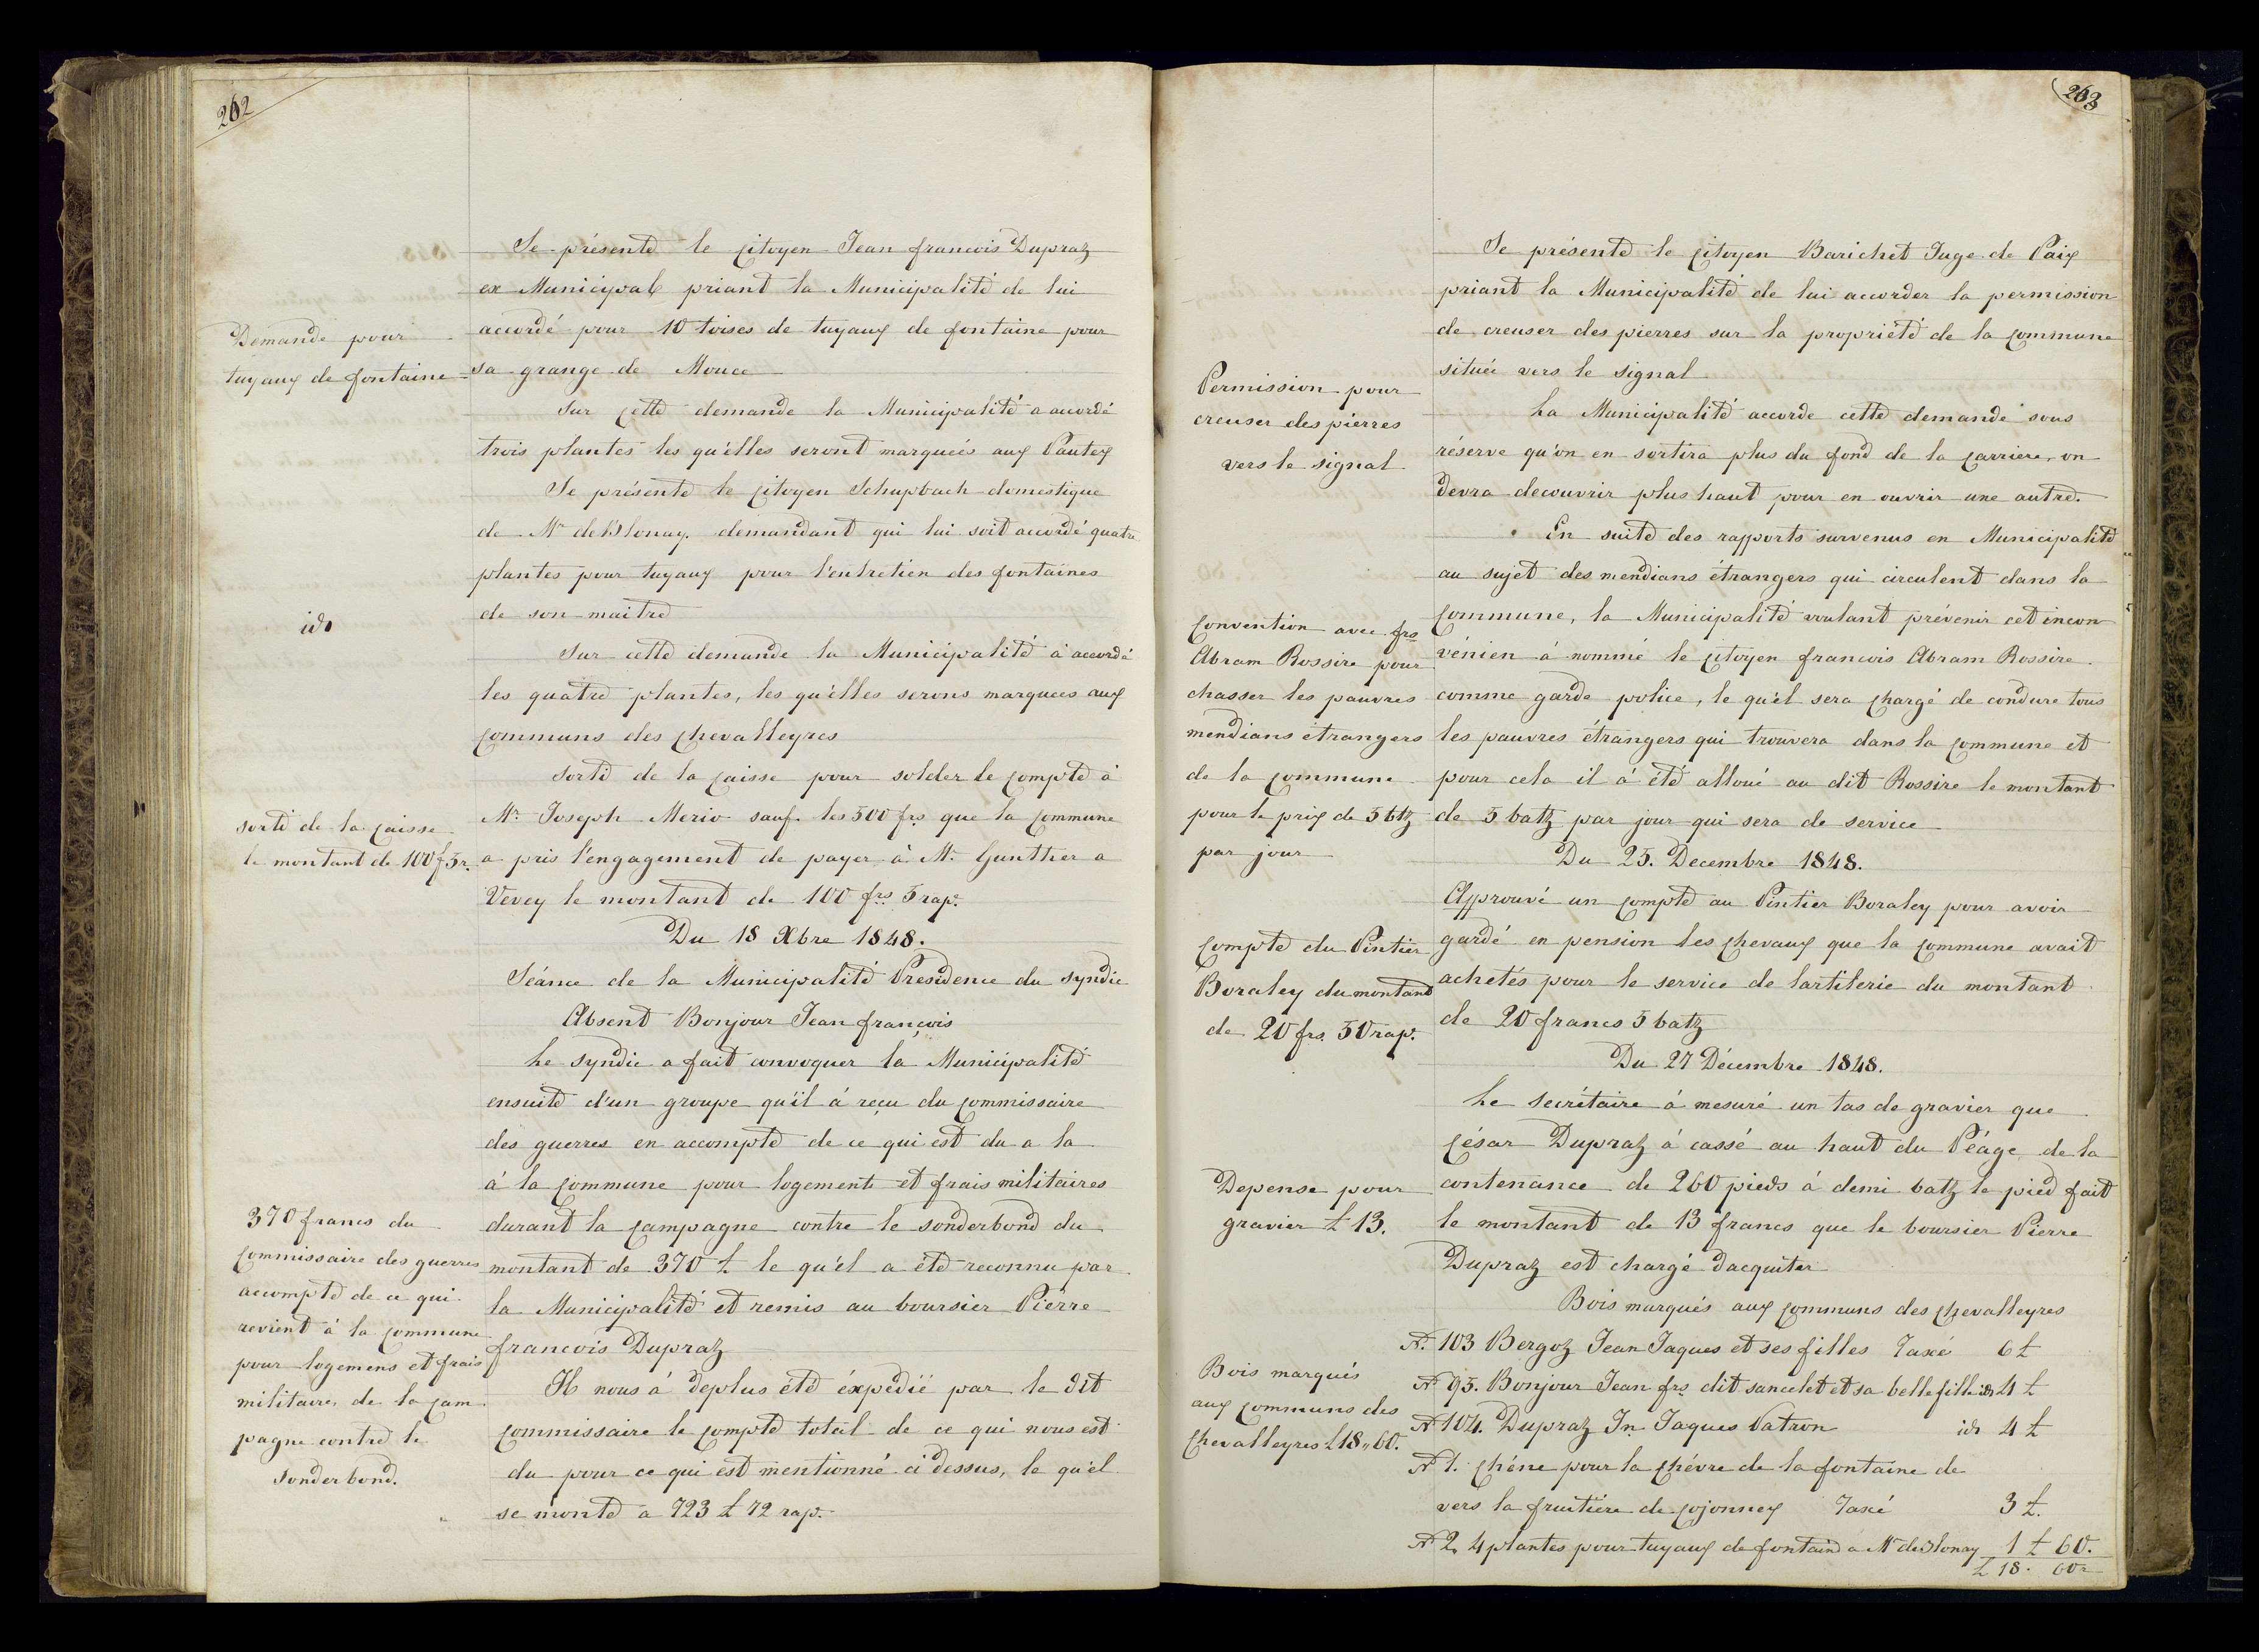 262
Se présente le citoyen Jean francois Dupraz
ex Municipal priant la Municipalité de lui
accordé pour 10 toises de tuyaux de fontaine pour
sa grange de Mouce
Demande pour
tuyaux de fontaine
Sur cette demande la Municipalité a accordé
trois plantes les qu'elles seront marqueés aux Pautex
Se présente le citoyen Schupbach domestique
de Mr de Blonay. demandant qui lui soit accordé quatre
plantes pour tuyaux pour l'entretien des fontaines
de son maitre
id.
Sur cette demande la Municipalité à accordé
les quatre plantes, les qu'elles serons marquees aux
communs des chevalleyres
Sorti de la caisse pour solder le compte à
Mr. Joseph Merio sauf les 500 frs que la commune
a pris l'engagement de payer à Mr. Gunther a
Vevey le montant de 100 frs 5 rap.
sorti de la caisse
le montant de 100 f 5 r.
Du 18 Xbre 1848.
Séance de la Municipalité Présidence du syndic
Absent Bonjour Jean françois
Le syndic a fait convoquer la Municipalité
ensuite d'un groupe qu'il à reçu du commissaire
des guerres en accompte de ce qui est du a la
à la commune pour logements et frais militaires
durant la campagne contre le sonderbond du
montant de 370 £ le qu'el a été reconnu par
la Municipalité et remis au boursier Pierre
francois Dupraz
370 francs du
commissaire des guerres
accompte de ce qui
revient à la commune
pour logemens et frais
militaires de la cam
pagne contre le
Sonderbond.
Il nous à deplus été éxpedié par le dit
commissaire le compte total de ce qui nous est
du pour ce qui est mentionné ci dessus, le qu'el
se monte a 723 £ 72 rap.
263
Se présente le citoyen Barichet Juge de Paix
priant la Municipalité de lui accorder la permission
de creuser des pierres sur la propriété de la commune
située vers le signal
Permission pour
creuser des pierres
vers le signal
La Municipalité accorde cette demande sous
réserve qu'on en sortira plus du fond de la carriere, on
devra decouvrir plus haut pour en ouvrir une autre.
En suite des rapports survenus en Municipalité
au sujet des mendians étrangers qui circulent dans la
commune, la Municipalité voulant prévenir cet incon
vénien à nommé le citoyen francois Abram Rossire
comme garde police, le qu'el sera chargé de condure tous
les pauvres étrangers qui trouvera dans la commune et
pour cela il à été alloué au dit Rossire le montant
de 5 batz par jour qui sera de service
Convention avec frs
Abram Rossire pour
chasser les pauvres
mendians étrangers
de la commune
pour le prix de 5 btz
par jour
Du 25. Decembre 1848.
Approuvé un compte au Pintier Boraley pour avoir
gardé en pension les chevaux que la commune avait
achetés pour le service de lartilerie du montant
de 20 francs 5 batz
compte du Pintier
Boraley du montant
de 20 frs. 50 rap.
Du 27 Décembre 1848.
Le Secrétaire à mesuré un tas de gravier que
César Dupraz à cassé au haut du Péage de la
contenance de 260 pieds à demi batz le pied fait
le montant de 13 francs que le boursier Pierre
Dupraz est chargé dacquiter
Depense pour
gravier £ 13.
Bois marqués aux communs des chevalleyres
No. 103 Bergoz Jean Jaques et ses filles Taxé 6 £
No 95. Bonjour Jean frs dit sancelet et sa belle fille id 4 £
No 104. Dupraz Jn Jaques Patron id 4 £
No 1. chéne pour la chévre de la fontaine de
vers la fruitière de cojonnex Taxé 3 £.
No 2. 4 plantes pour tuyaux de fontaine a Mr de Blonay 1 £ 60.
£ 18. 60 r
Bois marqués
aux communs des
chevalleyres £ 18 " 60.